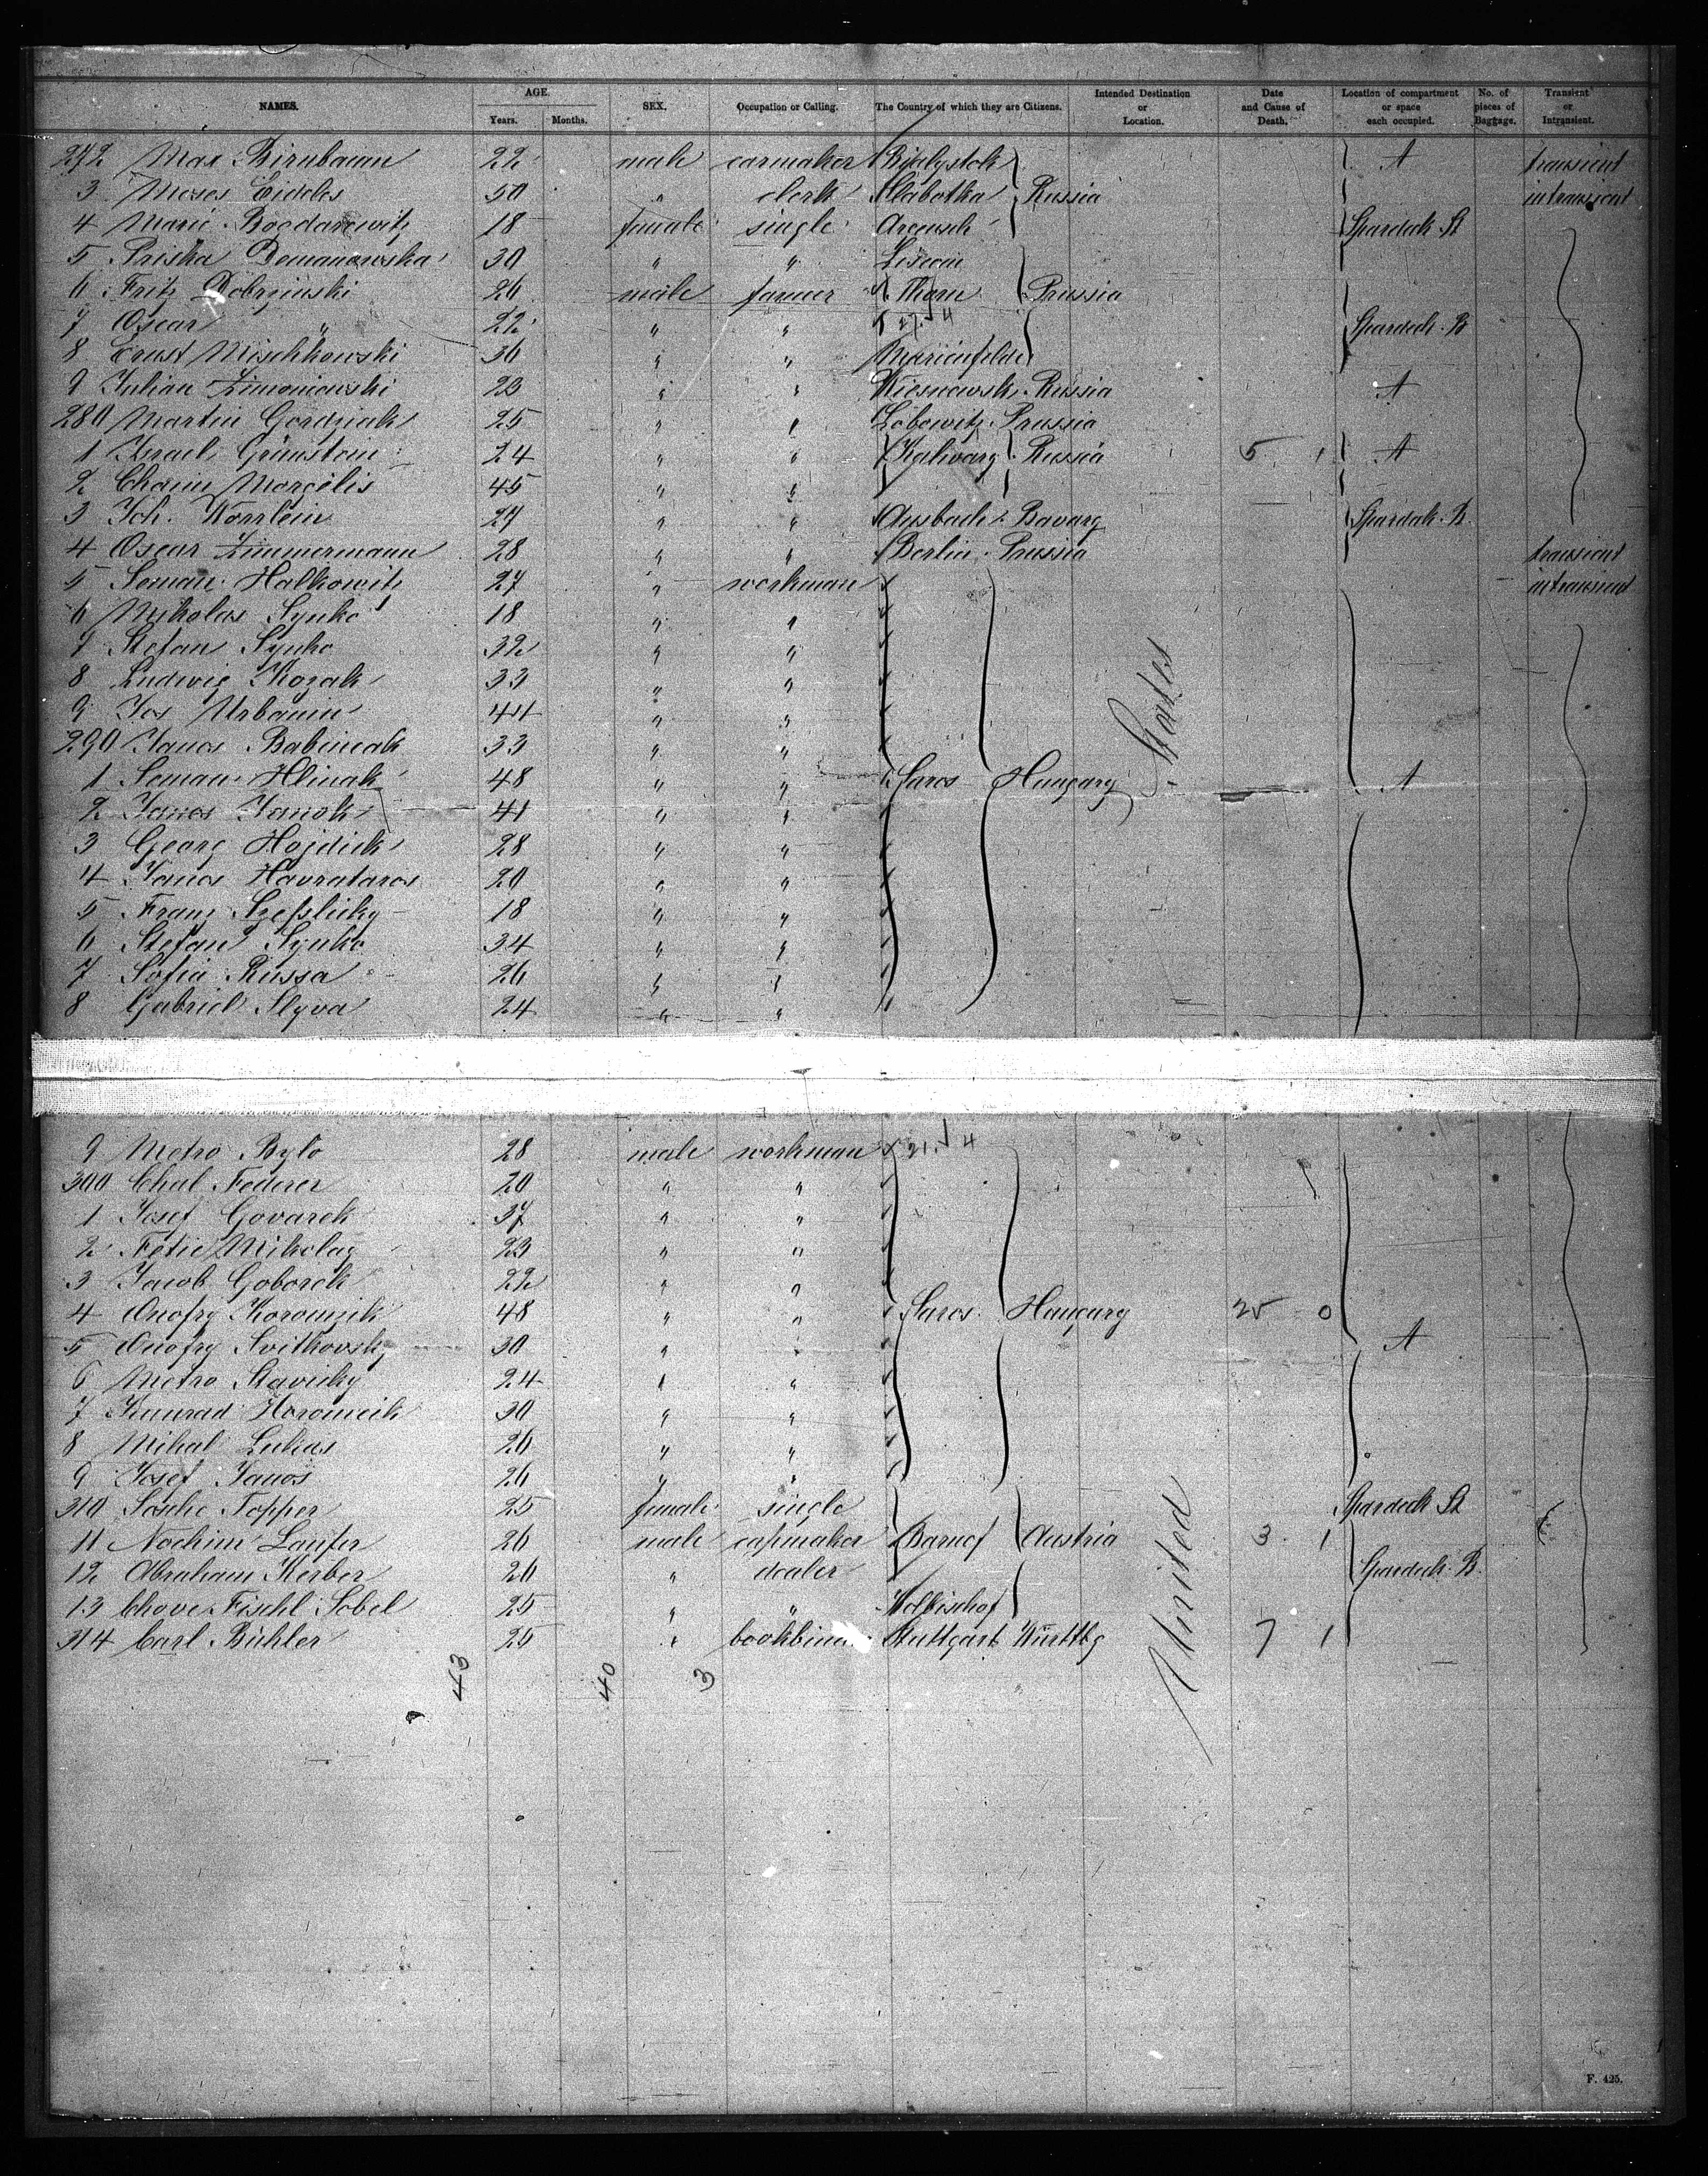 NAMES. AGE. SEX. Occupation or Calling. The Country of which they are Citizens. Intended Destination or Location. Date and Cause of Death. Location of compartment or space each occupied. No. of pieces of Baggage. Transient or Intransient.
Years. Months.
272 Max Birnbaum 22 male carmaker Bialystok A transient
3 Moses Eideles 50 " clerk Slabotka Russia intransient
4 Marie Bogdarewitz 18 female single Spardeck St
5 Priska Demanowska 30 " "
6 Fritz Dobrzinski 26 male farmer Thorn Prussia
7 Oscar " 22 " " Spardeck B
8 Ernst Mischkowski 36 " " Marienfelde
9 Julian Zimoniewski 23 " " Russia A
280 Martin Gordziak 25 " " Lobowitz Prussia
1 Israel Grünstein 24 " " Kalwary Russia 5 1 A
2 Chaim Margelis 45 " "
3 Joh. Worrlein 27 " " Ansbach Bavarg Spardeck B.
4 Oscar Zimmermann 28 " " Berlin Prussia transient
5 Seman Halkowitz 27 " workman intransient
6 Mikolas Synko 18 " "
7 Stefan Synko 32 " "
8 Ludwig Kozak 33 " "
9 Jos Urbann 44 " "
290 Janos Babincak 33 " " States
1 Seman Hlinak 48 " " Saros Hungary A
2 Janos Janok 41 " "
3 Georg Hojdick 28 " "
4 Janos Havrataros 20 " "
5 Franz 18 " "
6 Stefan Synko 34 " "
7 Sofia Russa 26 " "
8 Gabriel Slyva 24 " "
9 Metro Bylo 28 male workman 21. 4
300 Chal Federer 20 " "
1 Josef Govarek 37 " "
2 Fetic Mikolag 23 " "
3 Jacob Goborek 22 " "
4 Onofry Koromzik 48 " " Saros Hungary 25 0
5 Onofry Svitkovsky 30 " " A
6 Metro Stavicky 24 " "
7 Kunrad Horomcik 30 " "
8 Mihal Lukias 26 " "
9 Josef Janos 26 " "
310 Sosche Topper 25 female single Spardeck St
11 Nochim Laufer 26 male capmaker Austria 3 1
12 Abraham Kerber 26 " dealer Spardeck B.
13 Chove Fischl Sobel 25 " "
314 Carl Bühler 25 " Stuttgart Württbg 7 1
United
43 40 3
F. 425.